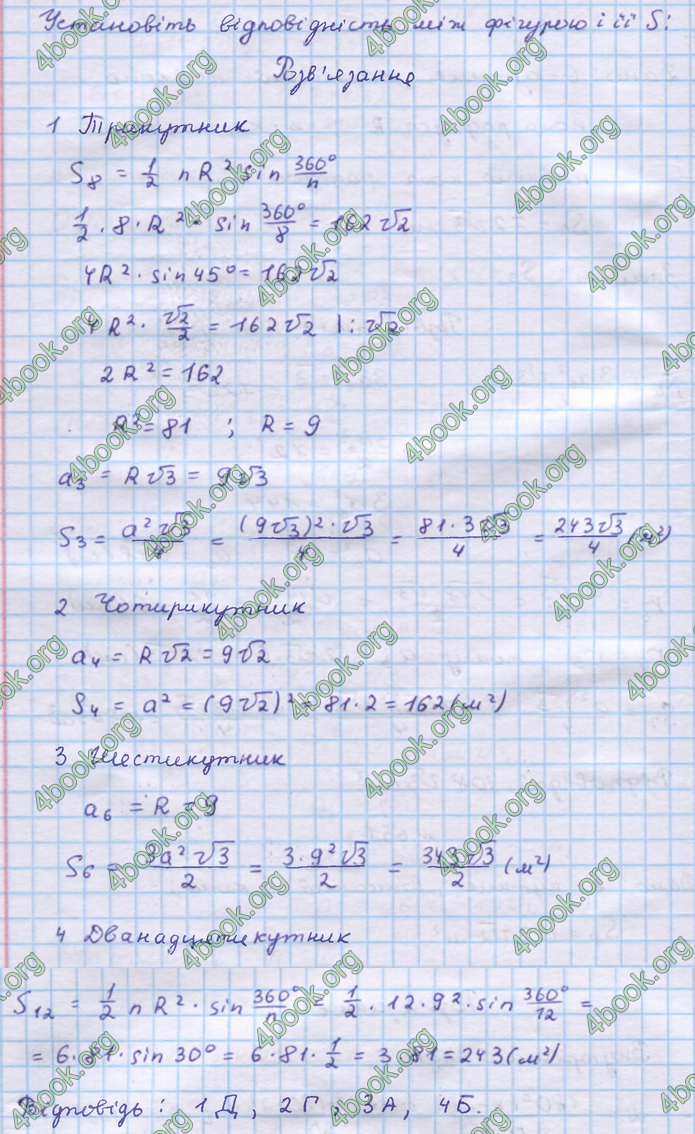 Установіть відповідність між фігурою і її S:
Розв'язання
1 Трикутник
S₈ = 1/2 n R² sin 360°/n
1/2 · 8 · R² · sin 360°/8 = 162√2
4R² · sin 45° = 162√2
4R² · √2/2 = 162√2 |: √2
2R² = 162
R² = 81 ; R = 9
a₃ = R√3 = 9√3
S₃ = a²√3/4 = (9√3)² · √3/4 = 81 · 3√3/4 = 243√3/4 (м²)
2 Чотирикутник
a₄ = R√2 = 9√2
S₄ = a² = (9√2)² = 81 · 2 = 162 (м²)
3 Шестикутник
a₆ = R = 9
S₆ = 3a²√3/2 = 3 · 9²√3/2 = 343√3/2 (м²)
4 Дванадцятикутник
S₁₂ = 1/2 n R² · sin 360°/n = 1/2 · 12 · 9² · sin 360°/12 =
= 6 · 81 · sin 30° = 6 · 81 · 1/2 = 3 · 81 = 243 (м²)
Відповідь: 1Д, 2Г, 3А, 4Б.
4book.org